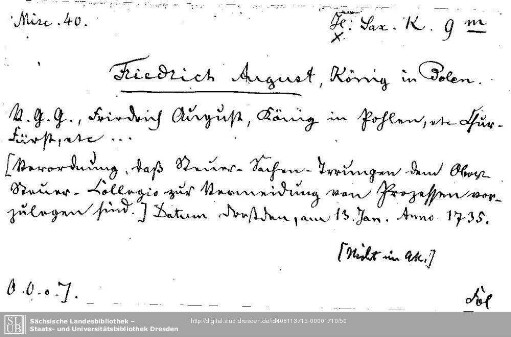 Misc. 40.
Hist. Sax. K. 9 m
x.
Friedrich August, König in Polen.
V. G. G., Friedrich August, König in Pohlen, etc Chur-
Fürst, etc ...
[Verordnung, daß Steuer-Sachen-Irrungen dem Ober-
Steuer-Collegio zur Vermeidung von Prozessen vor-
zulegen sind.] Datum Dreßden, am 13. Jan. Anno 1735.
[Nicht im AK.]
O. O. o J.
Fol
Sächsische Landesbibliothek –
Staats- und Universitätsbibliothek Dresden